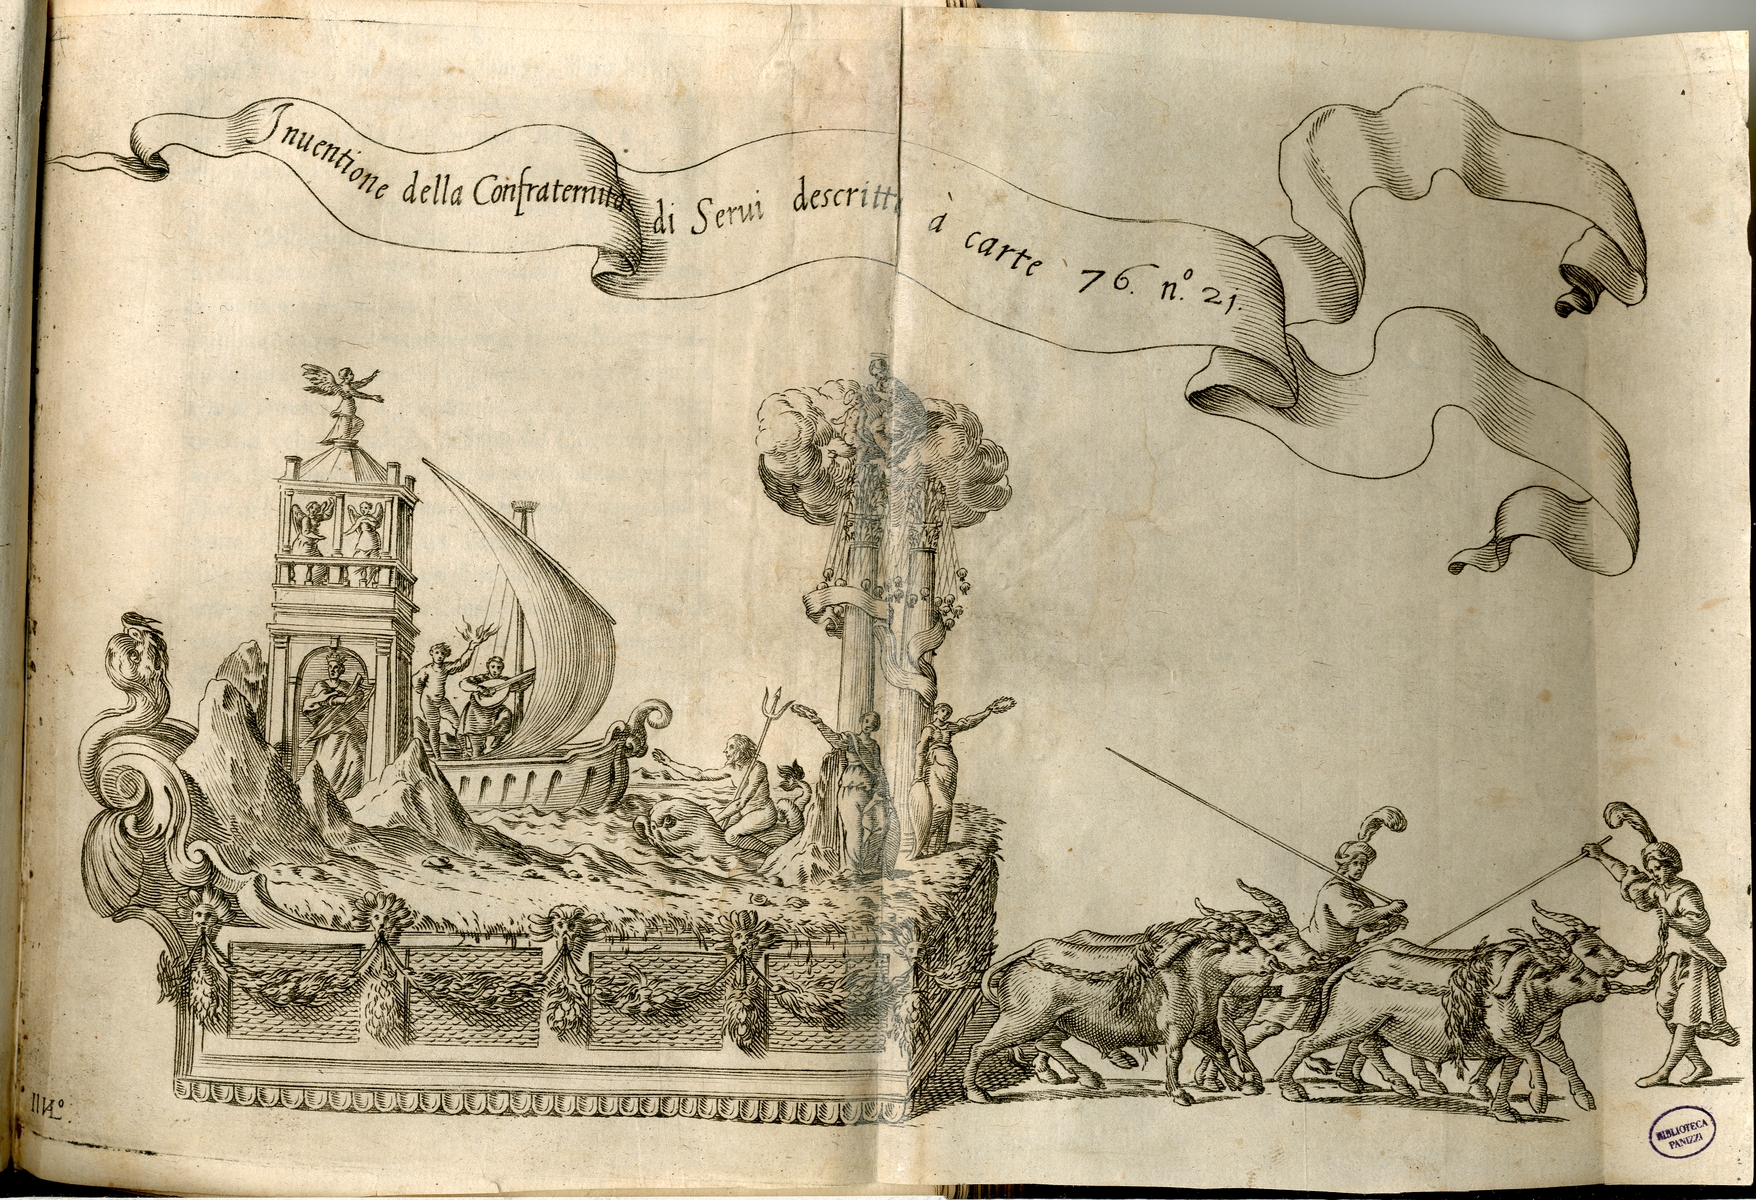 Inuentione della Confraternità di Serui descritta à carte 76. n.º 21.
BIBLIOTECA
PANIZZI